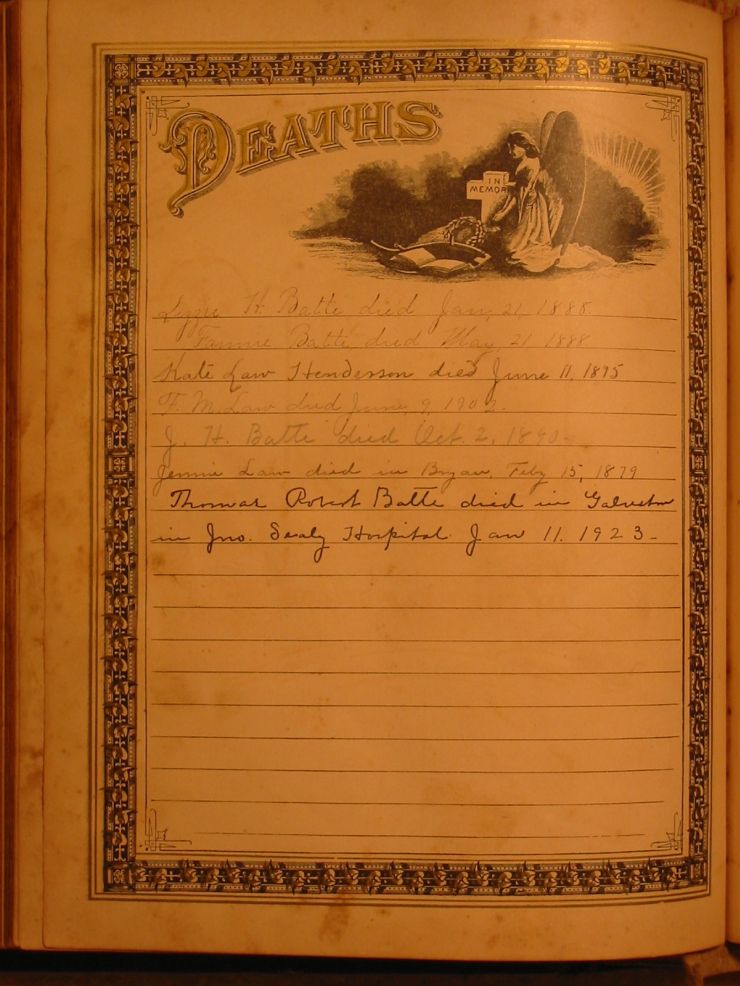 DEATHS
IN
MEMOR
Lizzie H. Batte died Jany 21, 1888.
Fannie Batte died May 21 1888
Kate Law Henderson died June 11, 1895
F. M. Law died June 9, 1902.
J. H. Batte died Oct. 2, 1890-
Jennie Law died in Bryan, Feby 15, 1879
Thomas Robert Batte died in Galveston
in Jno. Sealy Hospital Jan 11. 1923-